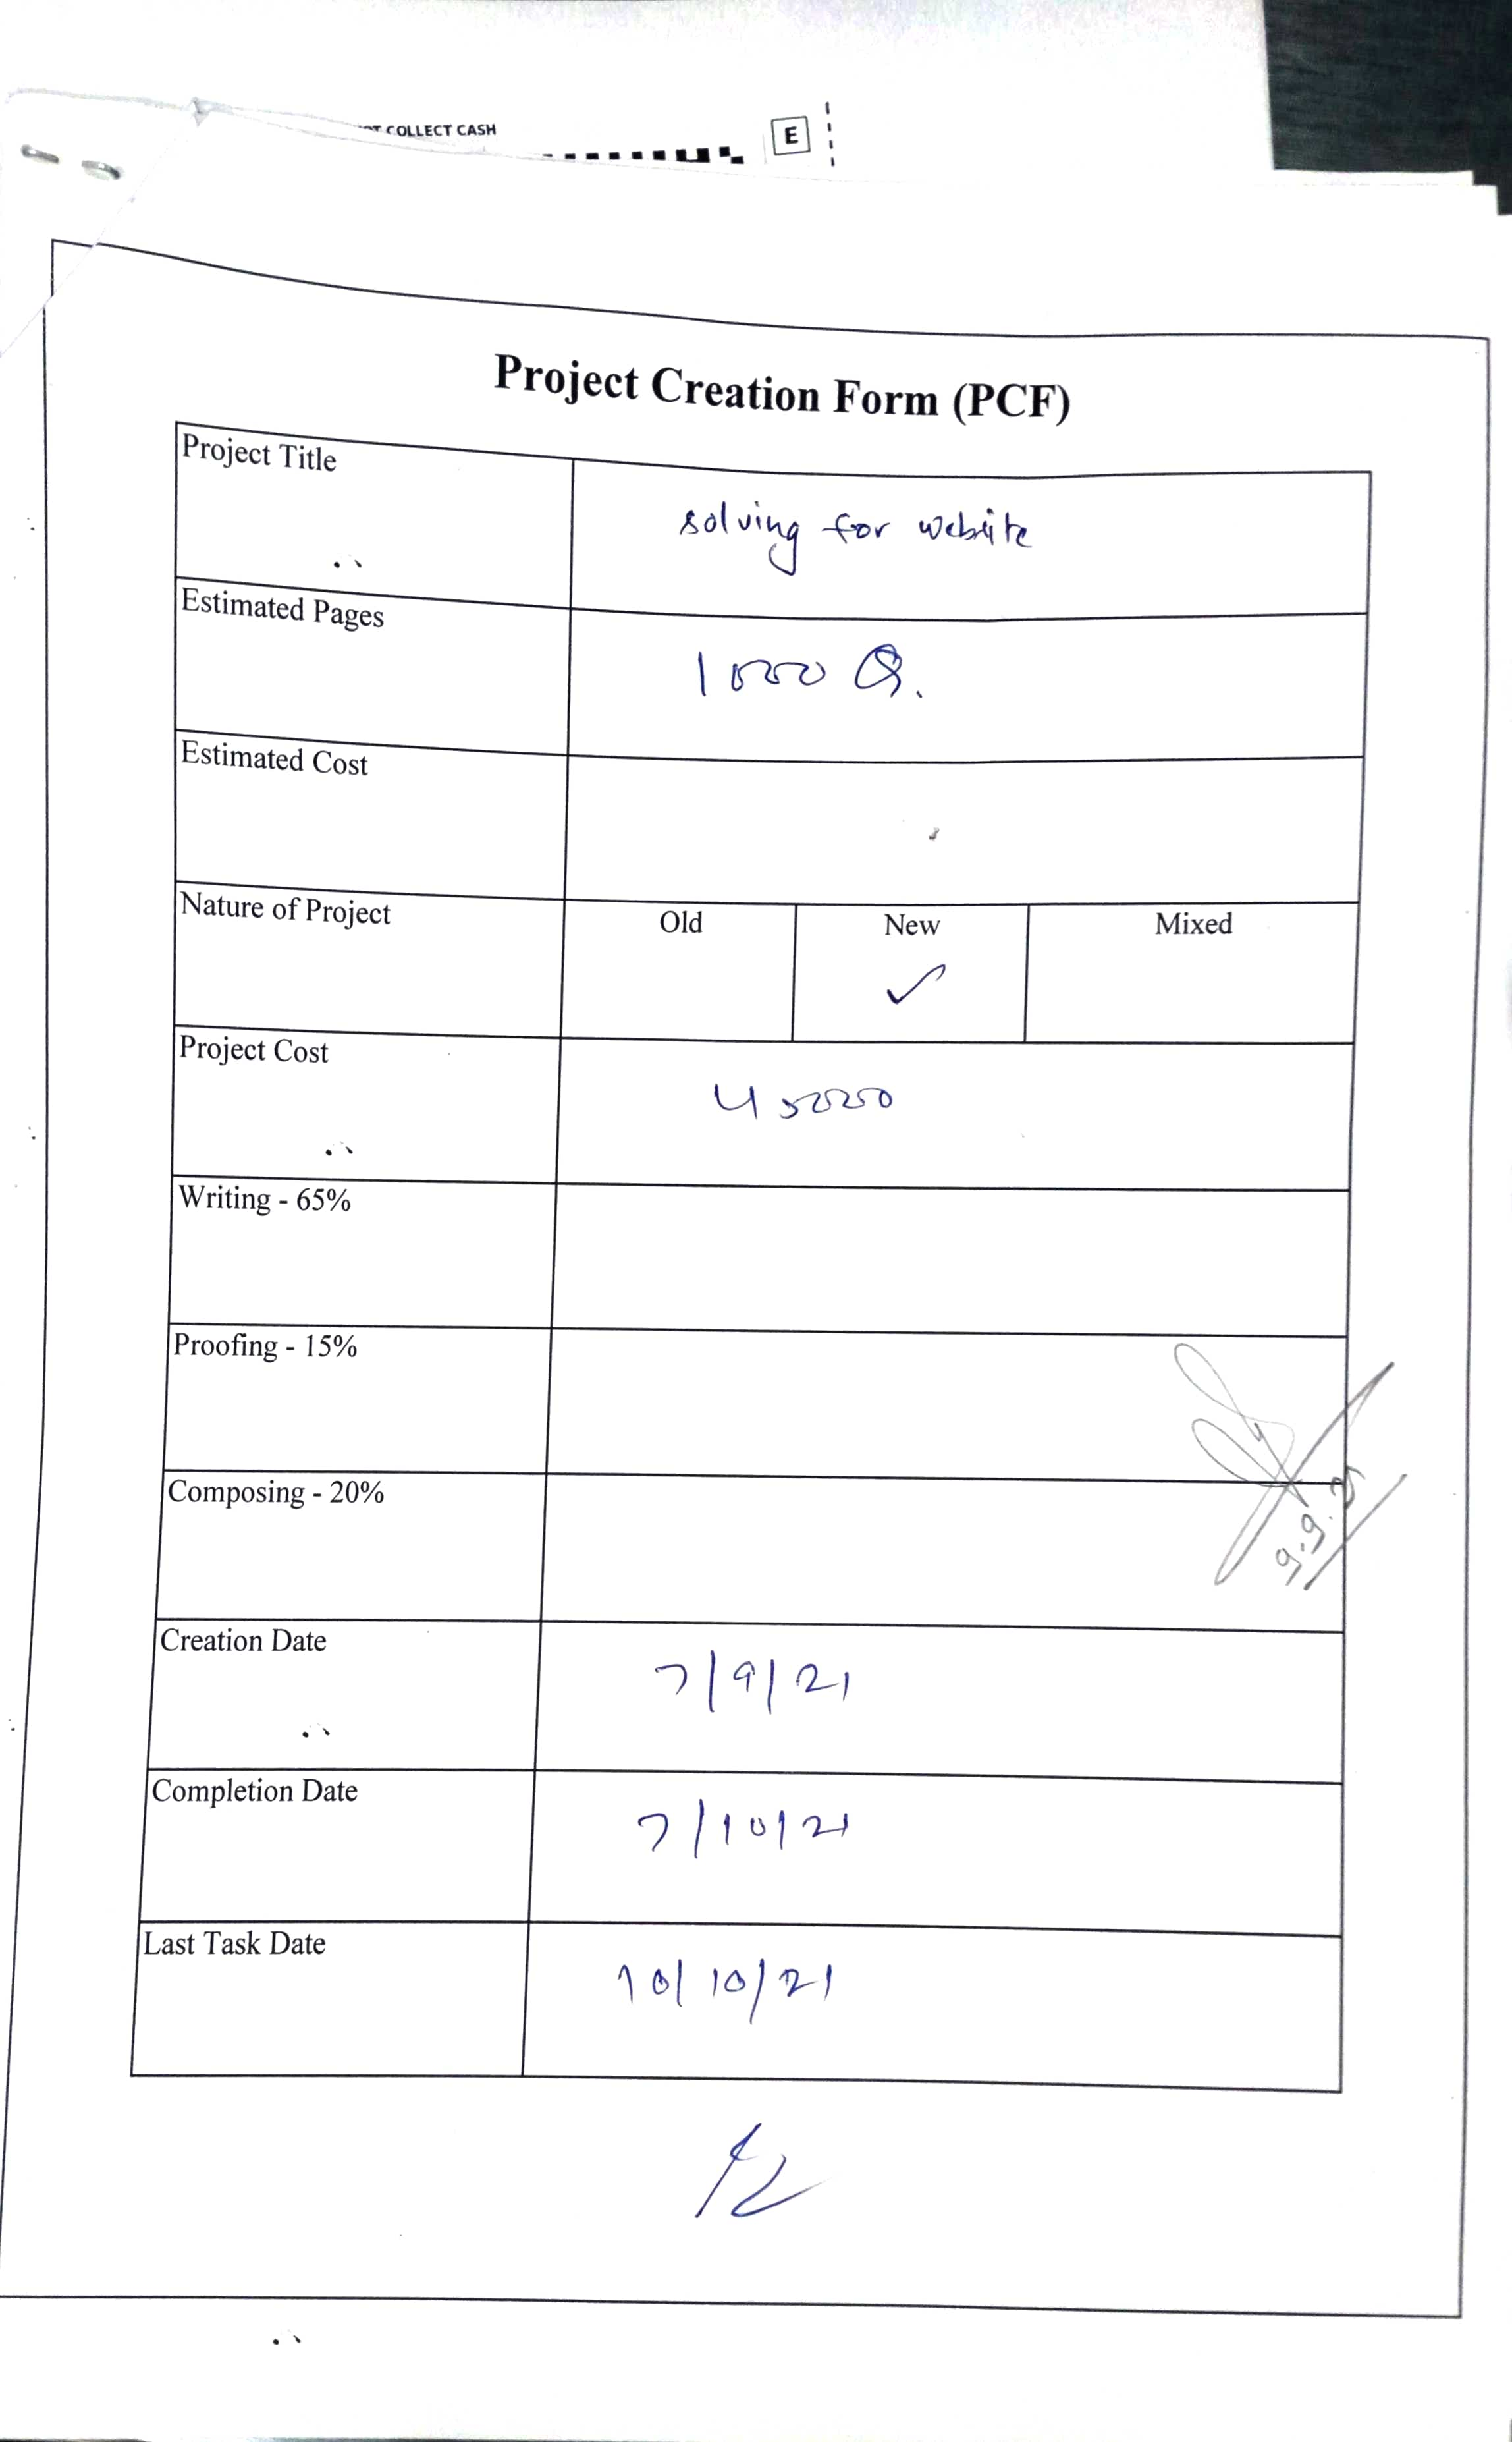 COLLECT CASH
E
Project Creation Form (PCF)
Project Title
solving for website
Estimated Pages
1000 Q.
Estimated Cost
Nature of Project
Old New Mixed
✓
Project Cost
45000
Writing - 65%
Proofing - 15%
Composing - 20%
9.9.21
Creation Date
7/9/21
Completion Date
7/10/21
Last Task Date
10/10/21